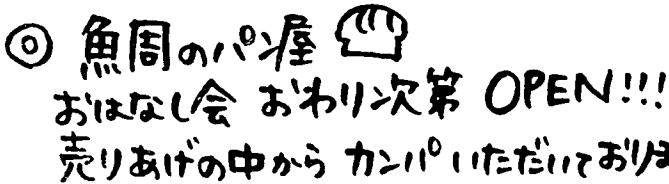 ◎ 魚周のパン屋
おはなし会 おわり次第 OPEN!!!
売りあげの中から カンパいただいており